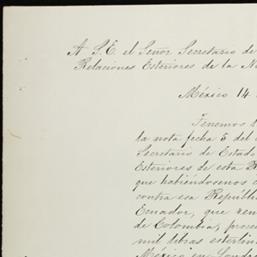 A S.E. el Señor Secretario de
Relaciones Exteriores de la N
México 14
Tenemos
la nota fecha 5 del
Secretario de Estado
Exteriores de esta R
que habiéndosenos
contra esa Repúbl
Ecuador, que ren
de Colombia, proce
mil libras esterlin
México en Londr